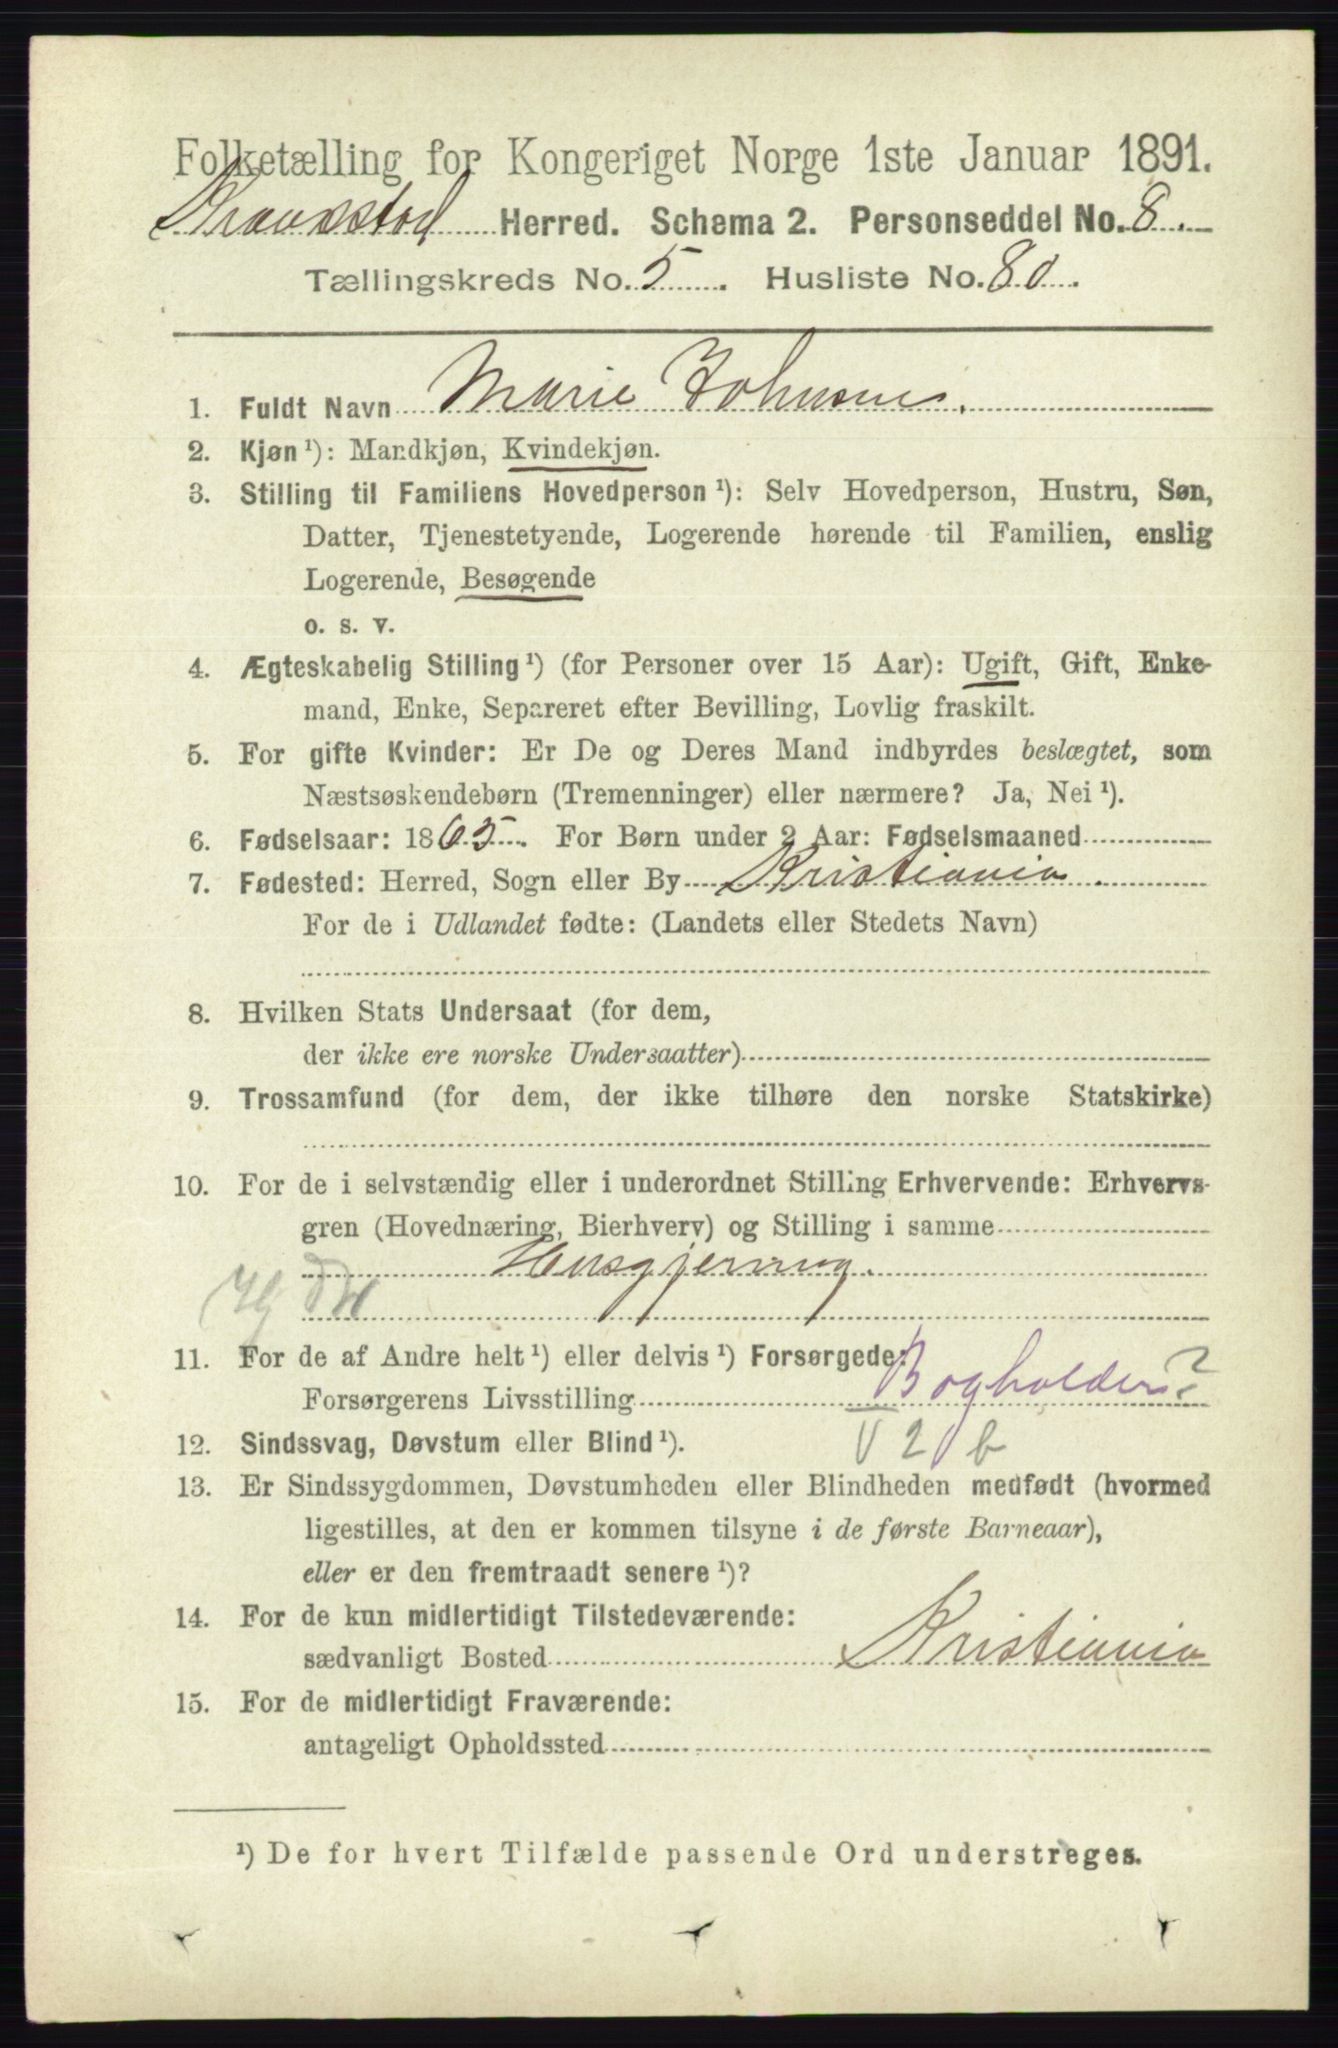 Folketælling for Kongeriget Norge 1ste Januar 1891.
Kraakstad Herred. Schema 2. Personseddel No. 8.
Tællingskreds No. 5. Husliste No. 80.
1. Fuldt Navn Marie Johnsen.
2. Kjøn ¹): Mandkjøn, Kvindekjøn.
3. Stilling til Familiens Hovedperson ¹): Selv Hovedperson, Hustru, Søn,
Datter, Tjenestetyende, Logerende hørende til Familien, enslig
Logerende, Besøgende
o. s. v.
4. Ægteskabelig Stilling ¹) (for Personer over 15 Aar): Ugift, Gift, Enke-
mand, Enke, Separeret efter Bevilling, Lovlig fraskilt.
5. For gifte Kvinder: Er De og Deres Mand indbyrdes beslægtet, som
Næstsøskendebørn (Tremenninger) eller nærmere? Ja, Nei ¹).
6. Fødselsaar: 1865. For Børn under 2 Aar: Fødselsmaaned
7. Fødested: Herred, Sogn eller By Kristiania.
For de i Udlandet fødte: (Landets eller Stedets Navn)
8. Hvilken Stats Undersaat (for dem,
der ikke ere norske Undersaatter)
9. Trossamfund (for dem, der ikke tilhøre den norske Statskirke)
10. For de i selvstændig eller i underordnet Stilling Erhvervende: Erhvervs-
gren (Hovednæring, Bierhverv) og Stilling i samme
Husgjerning.
11. For de af Andre helt ¹) eller delvis ¹) Forsørgede:
Forsørgerens Livsstilling Bogholder?
12. Sindssvag, Døvstum eller Blind ¹). V 2 b
13. Er Sindssygdommen, Døvstumheden eller Blindheden medfødt (hvormed
ligestilles, at den er kommen tilsyne i de første Barneaar),
eller er den fremtraadt senere ¹)?
14. For de kun midlertidigt Tilstedeværende:
sædvanligt Bosted Kristiania
15. For de midlertidigt Fraværende:
antageligt Opholdssted
¹) De for hvert Tilfælde passende Ord understreges.